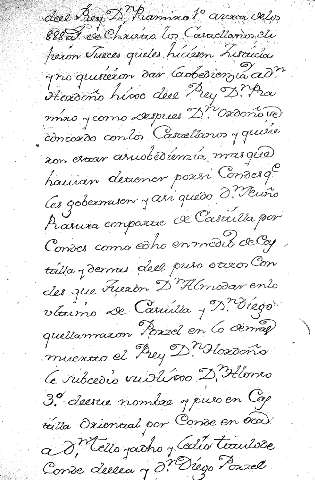 deel Rey D.n Ramiro 1.o acerca de los
888 a.s de Christo los Castellanos eli
jieron Jueces qe les hiciesen Justicia
y no quisieron dar la obediencia a d.n
Hordoño hijo deel Rey D.n Ra
miro y como despues D.n Ordoño
concordo con los Castellanos y quisie
ron estar a su obediencia, mas que
havian de tener por si Condes q.e
les governasen y asi quedo d.n Nuño
Rasura con parte de Castilla por
Condes como dho en medio de Cas
tilla y demas deel puso otros Con
des que fueron D.n Almodar en lo
ultimo de Castilla y D.n Diego
que llamaron Porzel en lo demas
muerto el Rey D.n Hordoño
le subcedio su hijo D.n Alonso
3.o de este nombre y puso en Cas
tilla Oriental por Conde en
a d.n Tello y a dho y le dio titulo de
Conde de ella y d.n Diego Porzel